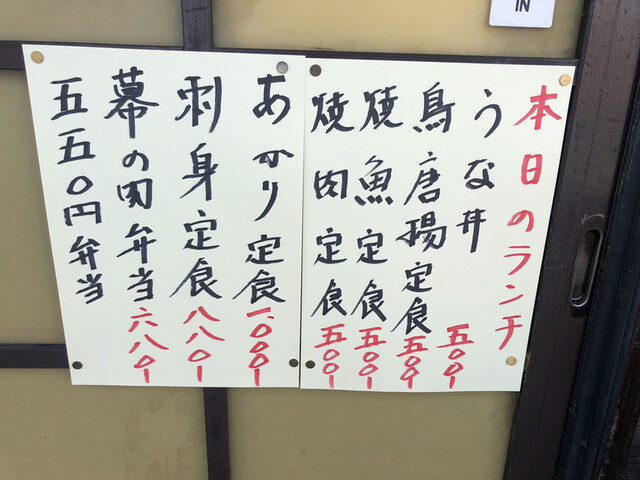 IN
本日のランチ
うな丼 五〇〇ー
鳥唐揚定食 五〇〇ー
焼魚定食 五〇〇ー
焼肉定食 五〇〇ー
あかり定食 一、〇〇〇ー
刺身定食 八八〇ー
幕の内弁当 六八〇ー
五五〇円弁当